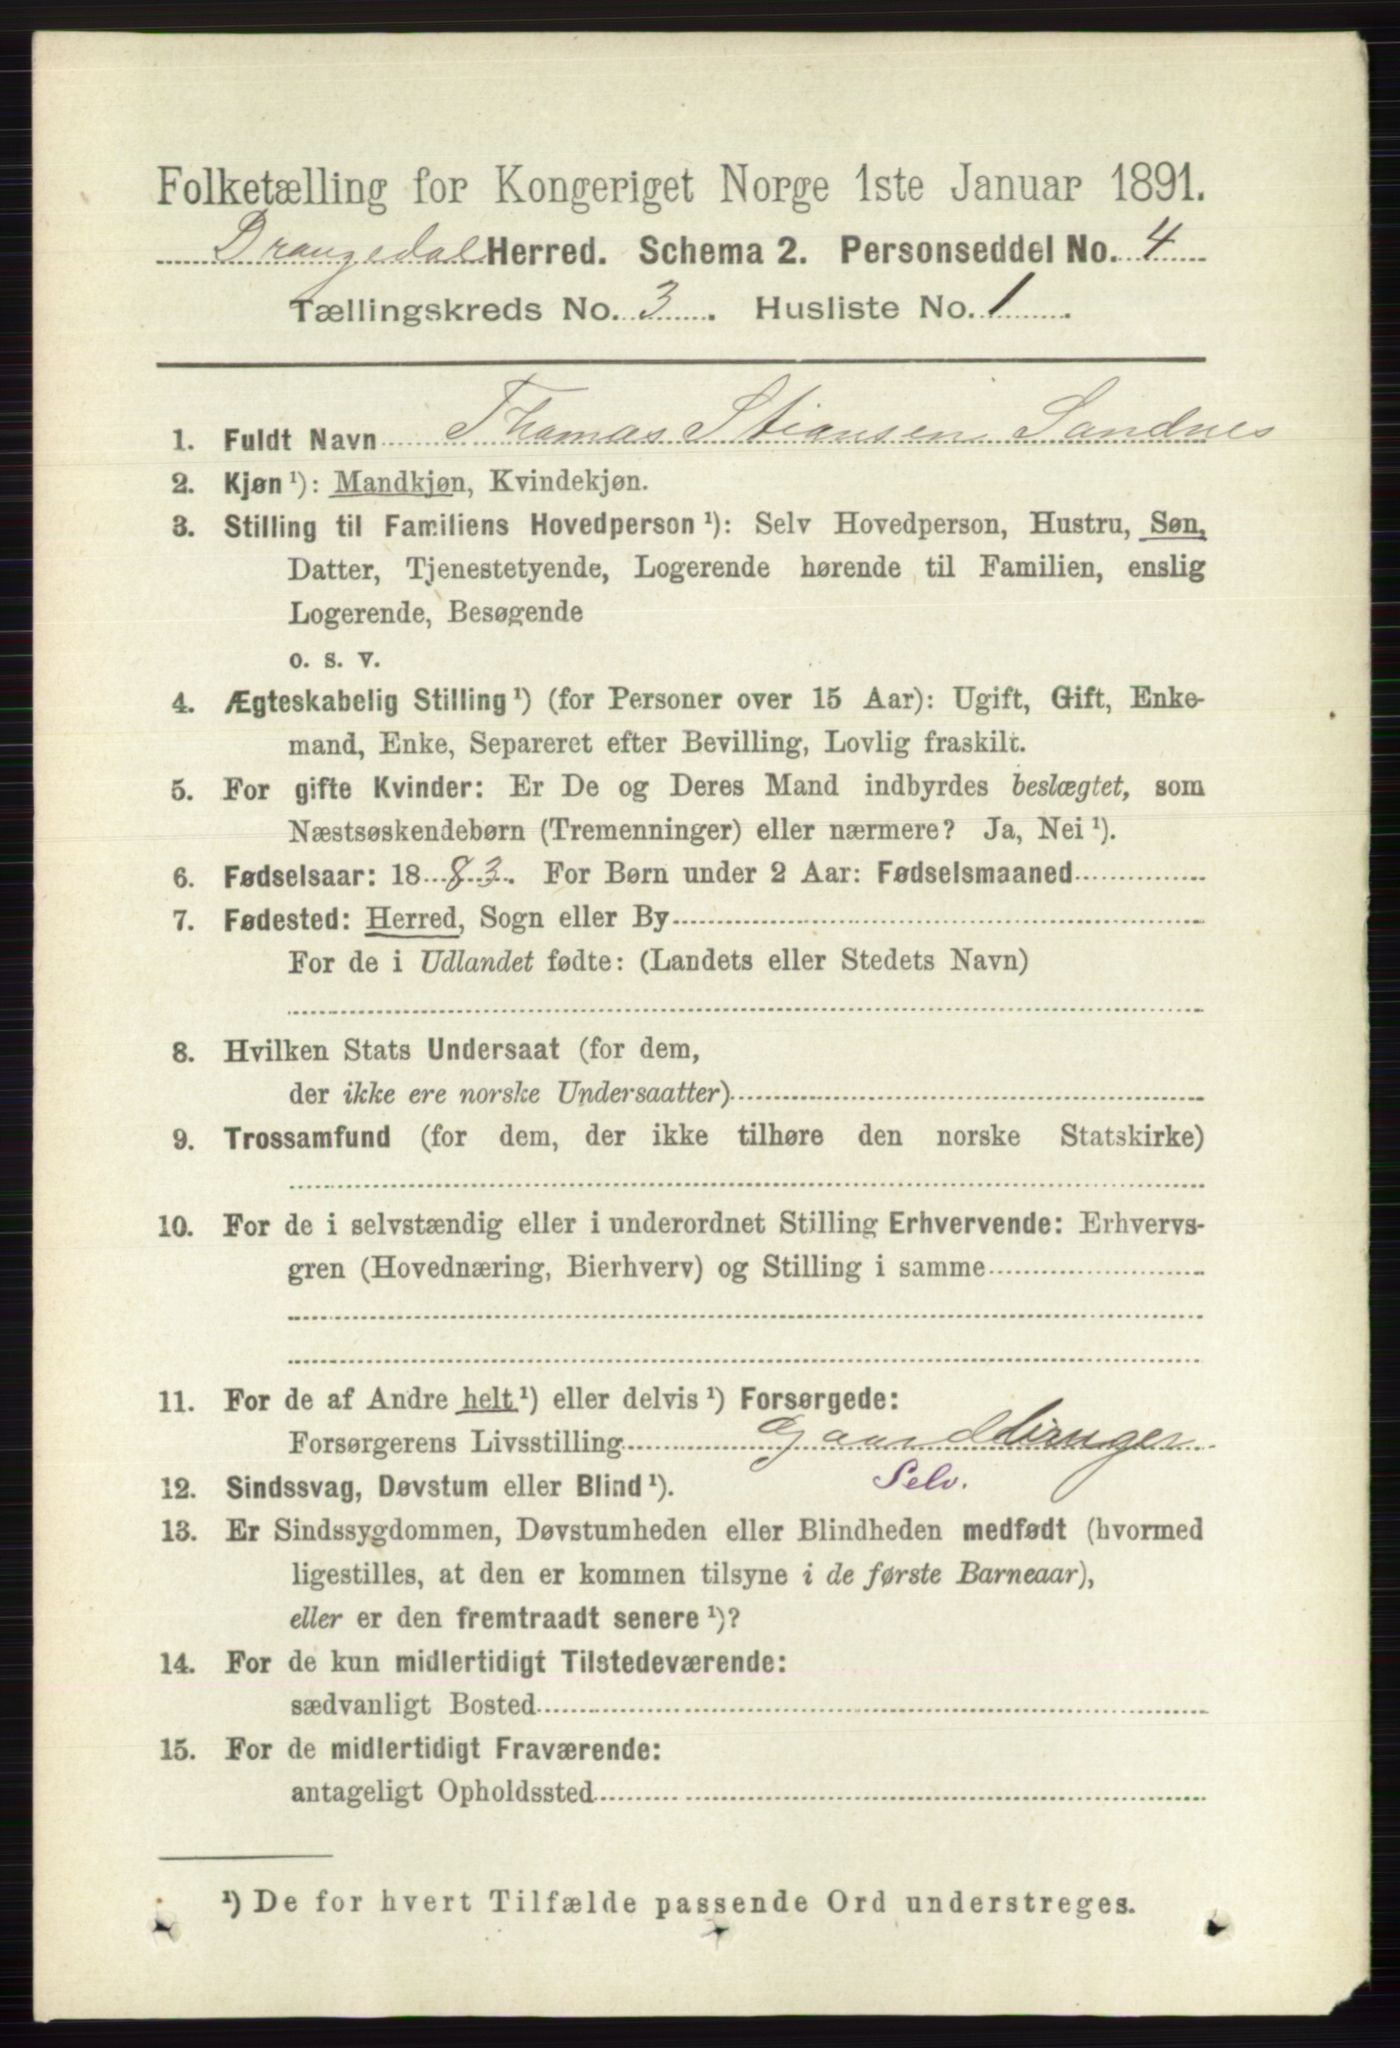 Folketælling for Kongeriget Norge 1ste Januar 1891.
Drangedal Herred. Schema 2. Personseddel No. 4
Tællingskreds No. 3. Husliste No. 1.
1. Fuldt Navn Thomas Stiansen Sandnes
2. Kjøn ¹): Mandkjøn, Kvindekjøn.
3. Stilling til Familiens Hovedperson ¹): Selv Hovedperson, Hustru, Søn,
Datter, Tjenestetyende, Logerende hørende til Familien, enslig
Logerende, Besøgende
o. s. v.
4. Ægteskabelig Stilling ¹) (for Personer over 15 Aar): Ugift, Gift, Enke-
mand, Enke, Separeret efter Bevilling, Lovlig fraskilt.
5. For gifte Kvinder: Er De og Deres Mand indbyrdes beslægtet, som
Næstsøskendebørn (Tremenninger) eller nærmere? Ja, Nei ¹).
6. Fødselsaar: 1883. For Børn under 2 Aar: Fødselsmaaned
7. Fødested: Herred, Sogn eller By
For de i Udlandet fødte: (Landets eller Stedets Navn)
8. Hvilken Stats Undersaat (for dem,
der ikke ere norske Undersaatter)
9. Trossamfund (for dem, der ikke tilhøre den norske Statskirke)
10. For de i selvstændig eller i underordnet Stilling Erhvervende: Erhvervs-
gren (Hovednæring, Bierhverv) og Stilling i samme
11. For de af Andre helt ¹) eller delvis ¹) Forsørgede:
Forsørgerens Livsstilling Gaardbruger
Selv.
12. Sindssvag, Døvstum eller Blind ¹).
13. Er Sindssygdommen, Døvstumheden eller Blindheden medfødt (hvormed
ligestilles, at den er kommen tilsyne i de første Barneaar),
eller er den fremtraadt senere ¹)?
14. For de kun midlertidigt Tilstedeværende:
sædvanligt Bosted
15. For de midlertidigt Fraværende:
antageligt Opholdssted
¹) De for hvert Tilfælde passende Ord understreges.